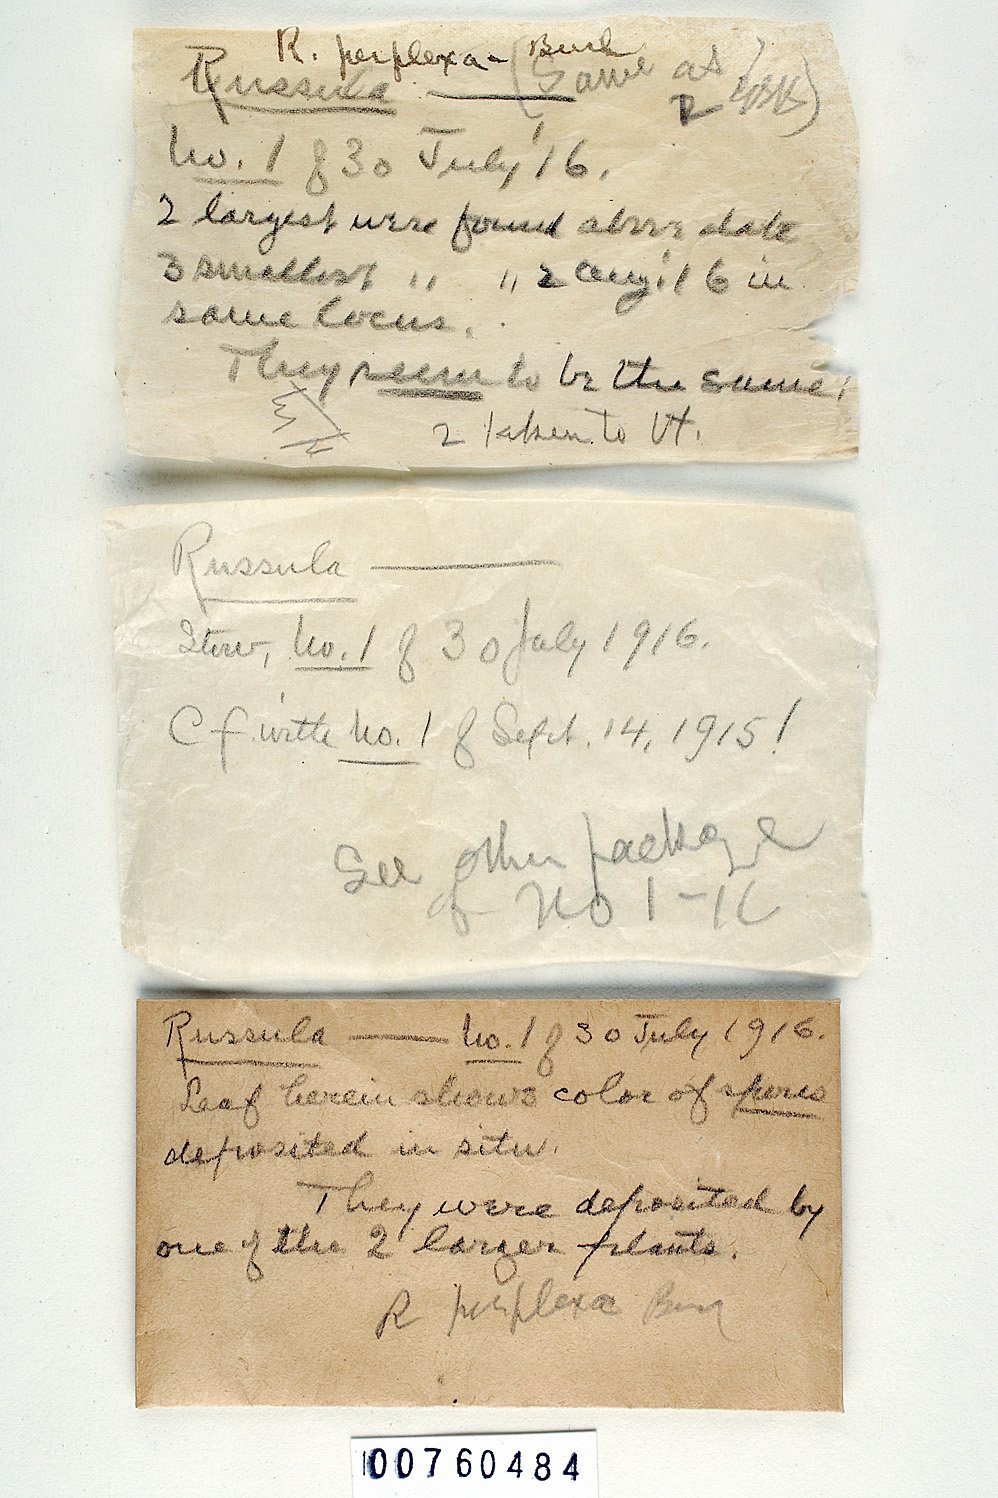 R. perplexa - Burl
Russula — (Same as
R
No. 1 of 30 July '16.
2 largest were found above date
3 smallest " " 2 Aug. '16 in
same locus.
They seem to be the same!
2 taken to Vt.
Russula —
Stow, No. 1 of 30 July 1916.
Cf. with No. 1 of Sept. 14, 1915!
See other package
of No 1 -
Russula — No. 1 of 30 July 1916.
Leaf herein shows color of spores
deposited in situ.
They were deposited by
one of the 2 larger plants.
R perplexa Bur
00760484